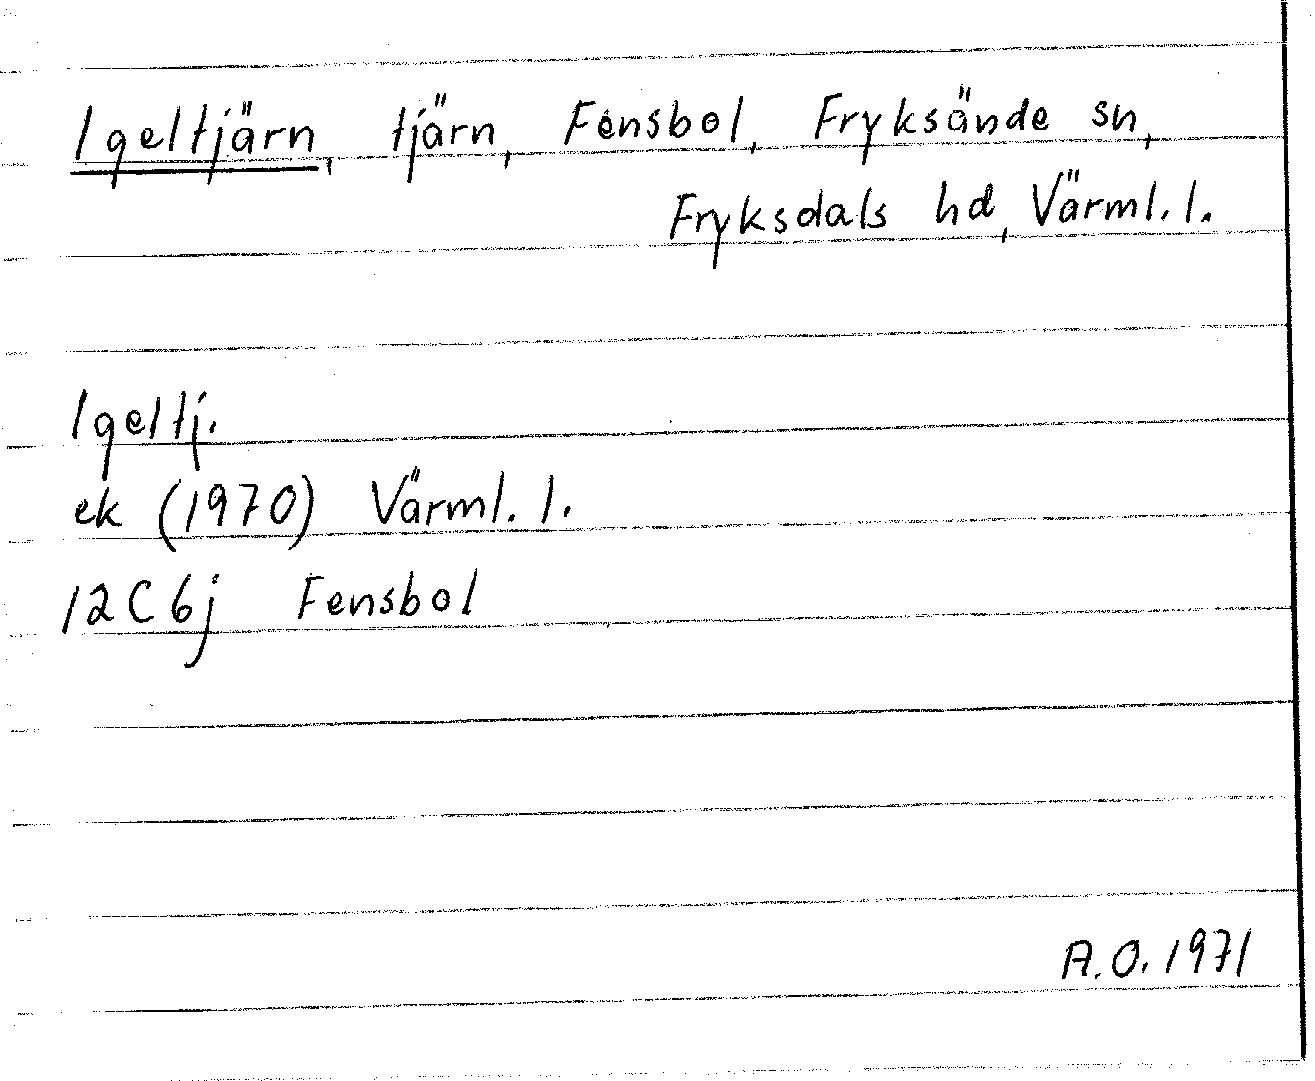 Igeltjärn, tjärn, Fensbol, Fryksände sn,
Fryksdals hd, Värml. l.
Igeltj.
ek (1970) Värml. l.
12C 6j Fensbol
A.O. 1971